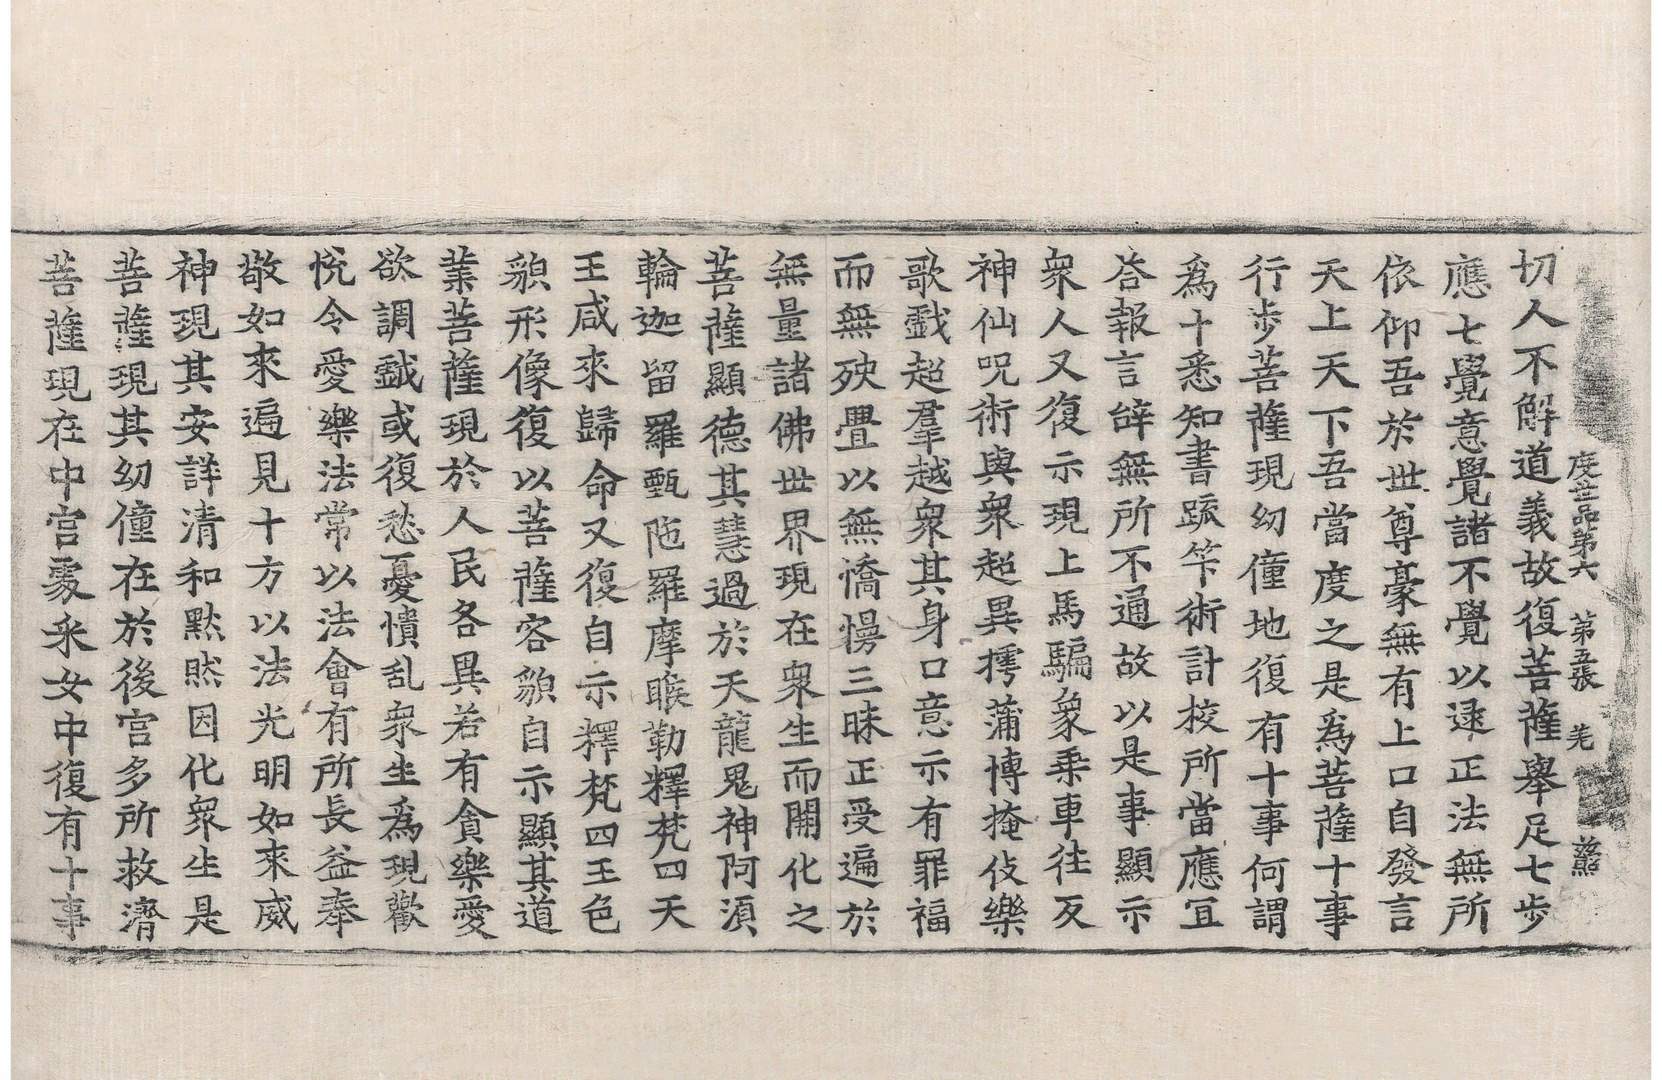 度世品第六 第五張 羌
切人不解道義故復菩薩舉足七步
應七覺意覺諸不覺以逮正法無所
依仰吾於世尊豪無有上口自發言
天上天下吾當度之是爲菩薩十事
行步菩薩現幼僮地復有十事何謂
爲十悉知書䟽笇術計挍所當應冝
荅報言辝無所不通故以是事顯示
衆人又復示現上馬騙象乗車往反
神仙呪術與衆超異摴蒲博掩伎樂
歌戲超羣越衆其身口意示有罪福
而無殃舋以無憍慢三昧正受遍於
無量諸佛世界現在衆生而開化之
菩薩顯德其慧過於天龍鬼神阿須
輪迦留羅甄陁羅摩睺勒釋梵四天
王咸來歸命又復自示釋梵四王色
貌形像復以菩薩容貌自示顯其道
業菩薩現於人民各異若有貪樂愛
欲調戲或復愁憂憒乱衆生爲現歡
恱令愛樂法常以法會有所長益奉
敬如來遍見十方以法光明如來威
神現其安詳清和黙然因化衆生是
菩薩現其幼僮在於後宫多所救濟
菩薩現在中宫婇女中復有十事